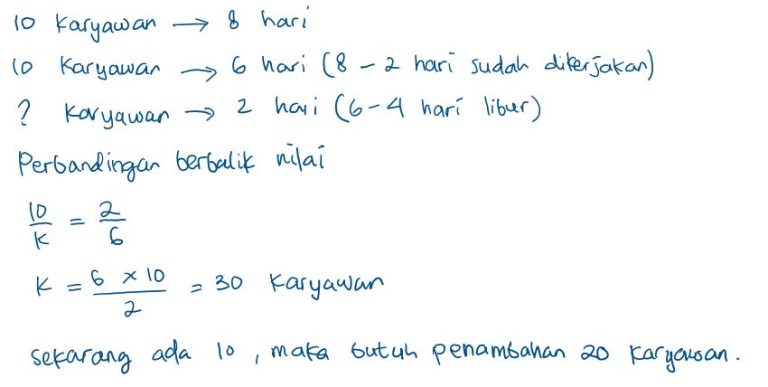 10 Karyawan → 8 hari
10 Karyawan → 6 hari (8 - 2 hari sudah dikerjakan)
? Karyawan → 2 hari (6-4 hari libur)
Perbandingan berbalik nilai
10/K = 2/6
K = 6 × 10/2 = 30 Karyawan
sekarang ada 10, maka butuh penambahan 20 karyawan.